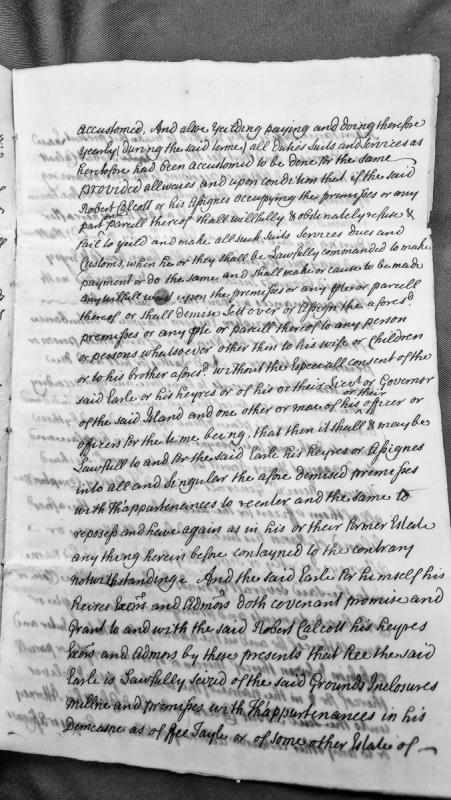 accustomed, And alsoe yeilding paying and doing therefore
yearly (during the said terme) all duties suits and services as
heretofore had been accustomed to be done for the same
provided allwaies and upon condition that if the said
Robert Calcott or his Assignes occupying the premisses or any
part parcell thereof shall willfully & obstinately refuse &
fail to yield and make all such suits services dues and
Customs, when he or they shall be Lawfully commanded to make
payment or do the same and shall make or cause to be made
any willfull wast upon the premisses or any pte or parcell
thereof or shall demise Sett over or Assign the aforesd
premisses or any pte or parcell thereof to any person
or persons whatsoever other then to his wife or Children
or to his brother aforesd without the Especiall consent of the
said Earle or his heyres or of his or their Lieut or Governor
of the said Island and one other or more of his or their officer or
officers for the time being, that then it shall & may be
Lawfull to and for the said Earle his heyres or Assignes
into all and singular the afore demised premisses
with thappurtenances to reenter and the same to
reposess and have again as in his or their former Estate
any thing herein before contayned to the contrary
notwithstanding. And the said Earle for himself his
Heires Exors and Admors doth covenant promise and
Grant to and with the said Robert Calcott his heyres
Exors and Admors by these presents that Hee the said
Earle is Lawfully seizd of the said Grounds Inclosures
Millne and premisses with thappurtenances in his
Demeasne as of ffee Tayle or of some other Estate of